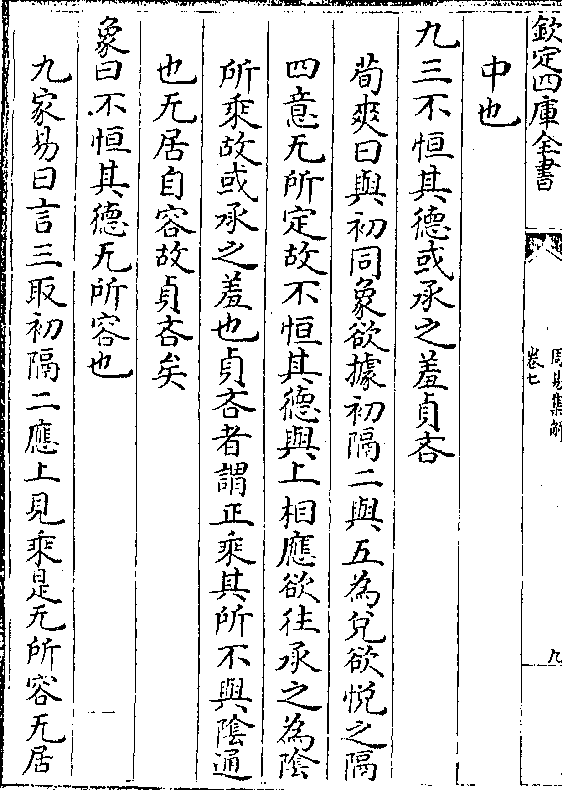 欽定四庫全書
周易集解
卷七
九
中也
九三不恒其德或承之羞貞吝
荀爽曰與初同象欲據初隔二與五為兌欲悅之隔
四意无所定故不恒其德與上相應欲往承之為陰
所乘故或承之羞也貞吝者謂正乘其所不與陰通
也无居自容故貞吝矣
象曰不恒其德无所容也
九家易曰言三取初隔二應上見乘是无所容无居